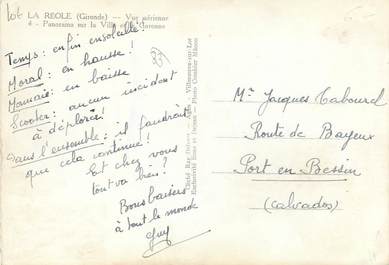 lot
LA RÉOLE (Gironde) — Vue aérienne
4 - Panorama sur la Ville et la Garonne
Temps : enfin ensoleillé !
Moral : en hausse !
Monnaie : en baisse
Scooter : aucun incident
à déplorer !
Dans l'ensemble : il faudrait
que cela continue !
Et chez vous
tout va bien ?
Bons baisers
à tout le monde
Guy
33
Villeneuve-sur-Lot
Mr Jacques Tabourel
Route de Bayeux
Port en Bessin
(Calvados)